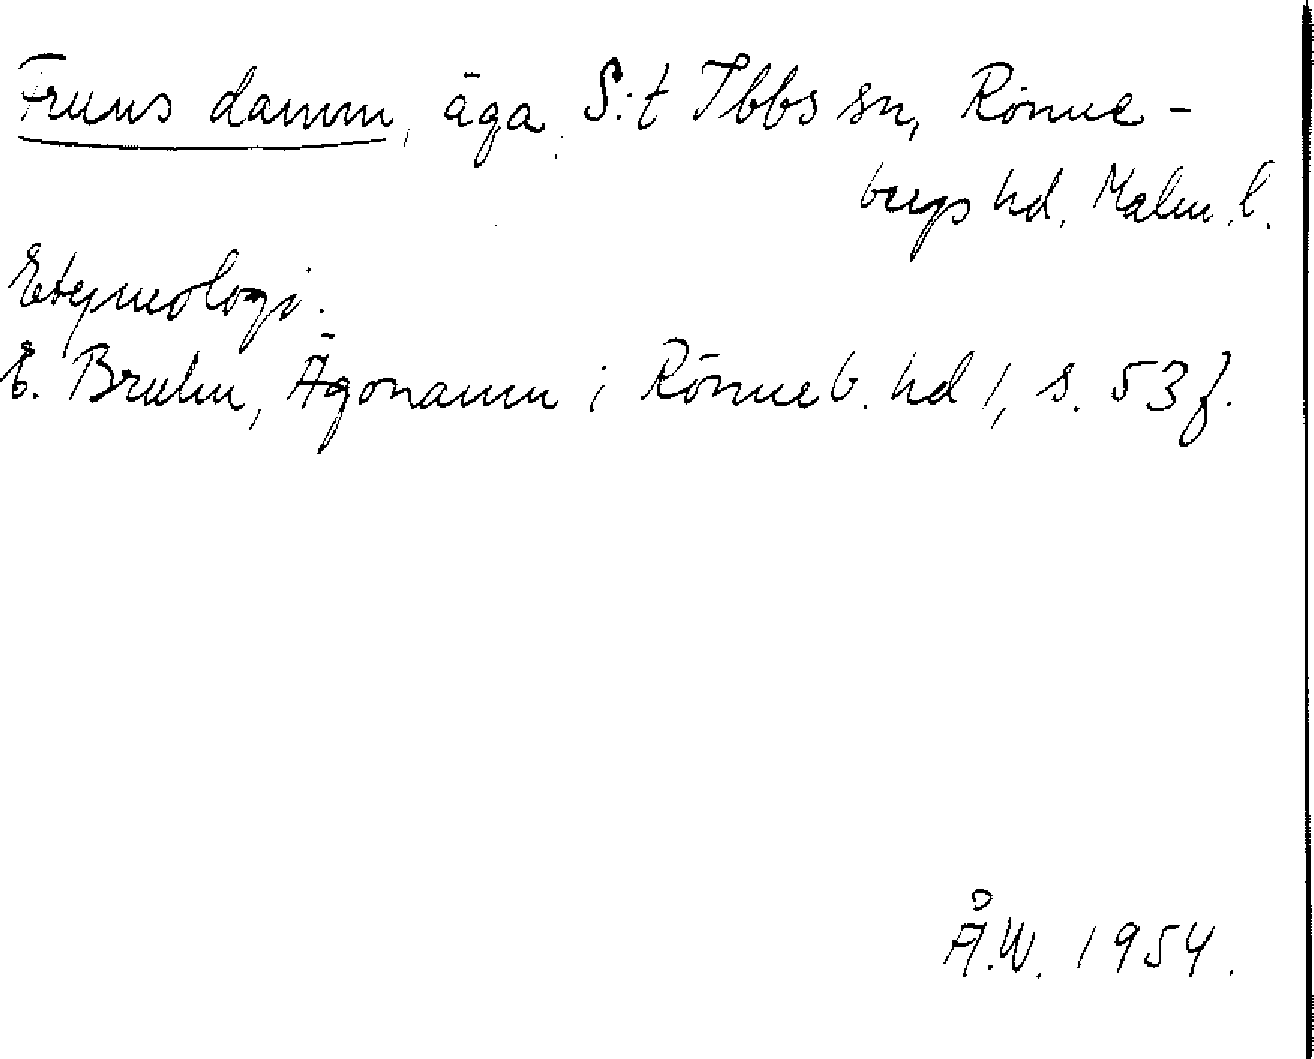 Fruns damm, äga, S:t Ibbs sn, Rönne-
bergs hd, Malm. l.
Etymologi.
E. Bruhn, Ägonamn i Rönneb. hd 1, s. 53 f.
Å.W. 1954.